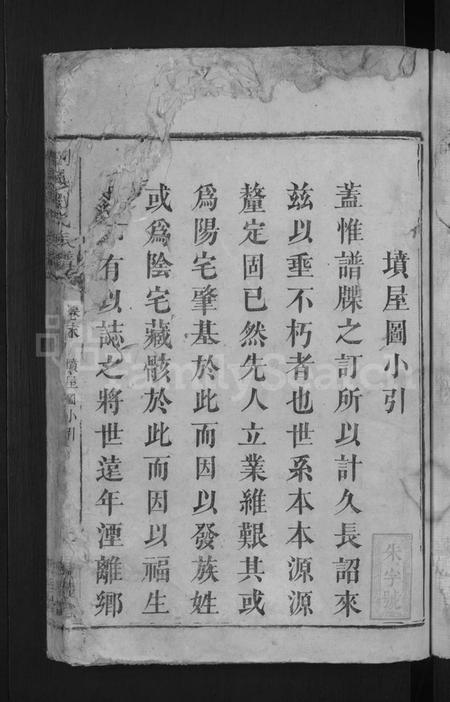 墳屋圖小引
蓋惟譜牒之訂所以計久長詔來
茲以垂不朽者也世系本本源源
釐定固已然先人立業維艱其或
為陽宅肇基於此而因以發族姓
或為陰宅藏骸於此而因以福生
有以誌之將世遠年湮離鄉
卷末 墳屋圖小引
朱字號
FamilySearch